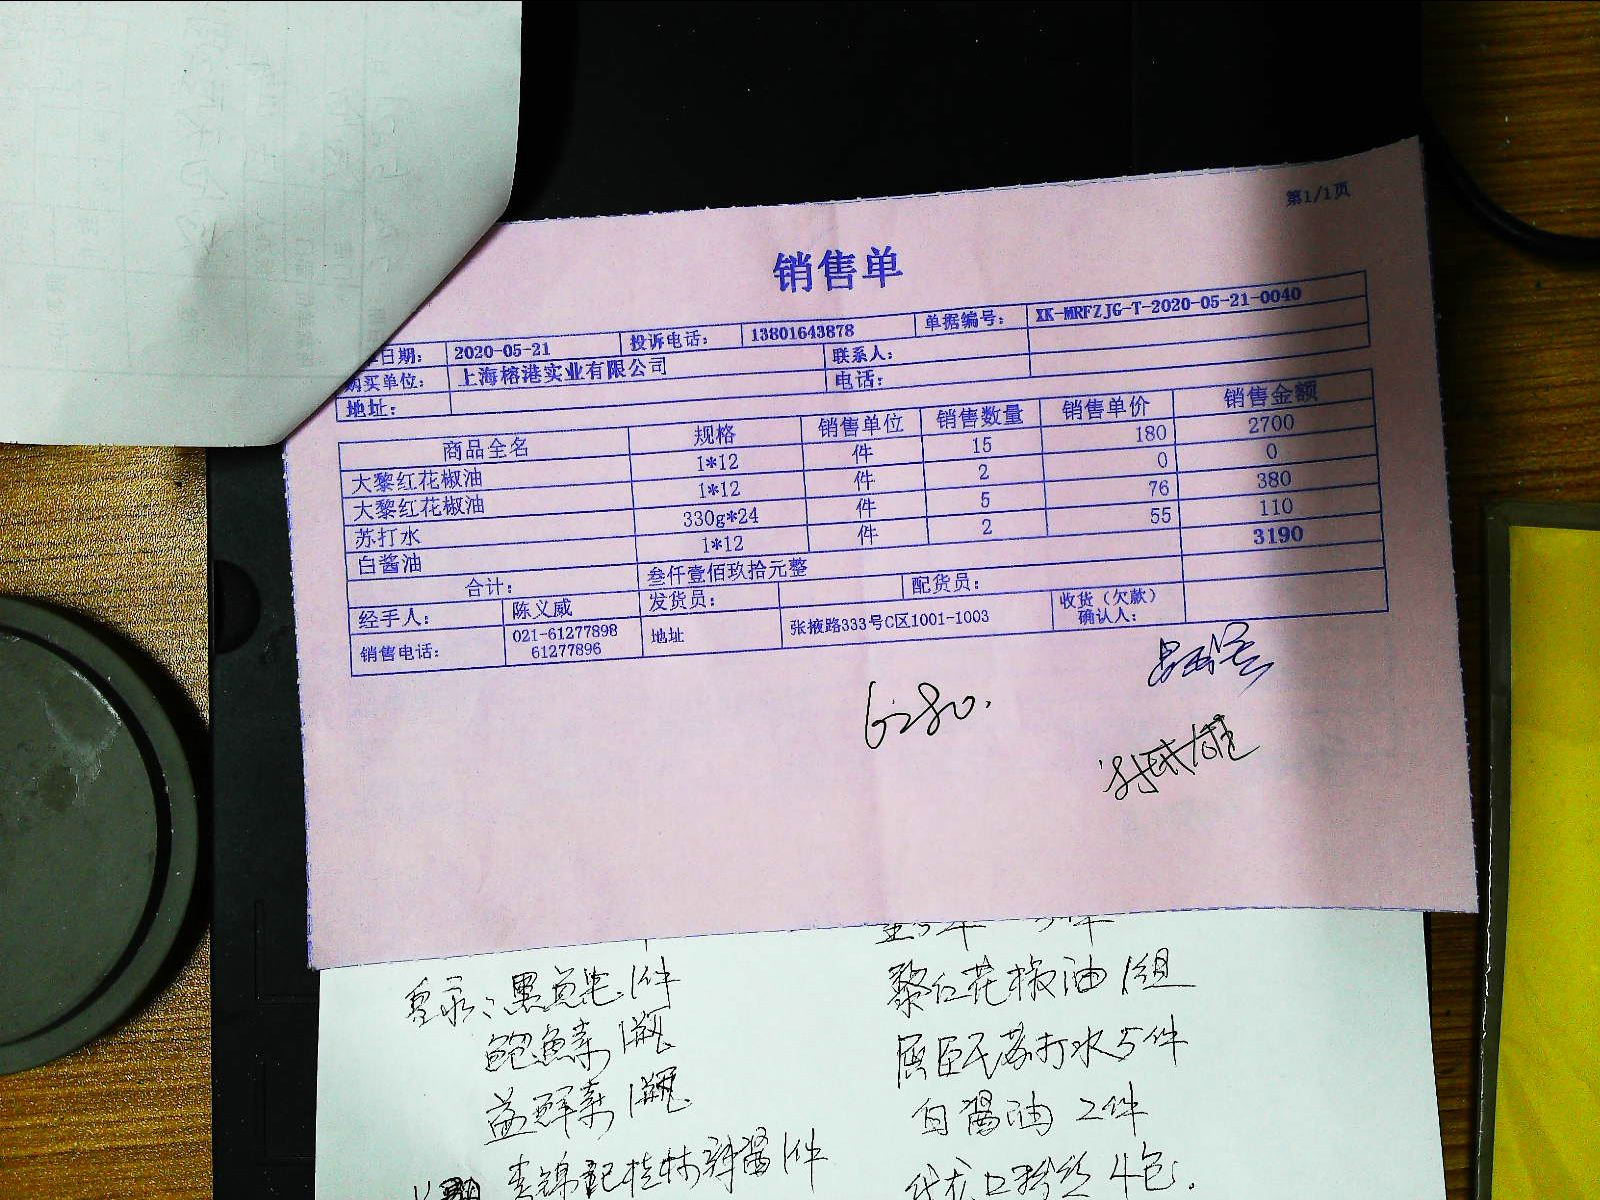 第1/1页
销售单
日期： 2020-05-21 投诉电话： 13801643878 单据编号： XK-MRFZJG-T-2020-05-21-0040
购买单位： 上海榕港实业有限公司 联系人：
地址： 电话：
商品全名 规格 销售单位 销售数量 销售单价 销售金额
大黎红花椒油 1*12 件 15 180 2700
大黎红花椒油 1*12 件 2 0 0
苏打水 330g*24 件 5 76 380
白酱油 1*12 件 2 55 110
合计： 叁仟壹佰玖拾元整 3190
经手人： 陈义威 发货员： 配货员：
销售电话： 021-61277898 61277896 地址 张掖路333号C区1001-1003 收货（欠款）确认人：
6280.
黎红花椒油 1组
鲍鱼素 1瓶
屈臣氏苏打水 5件
益鲜素 1瓶
白酱油 2件
李锦记桂林辣酱 1件
龙口粉丝 4包.